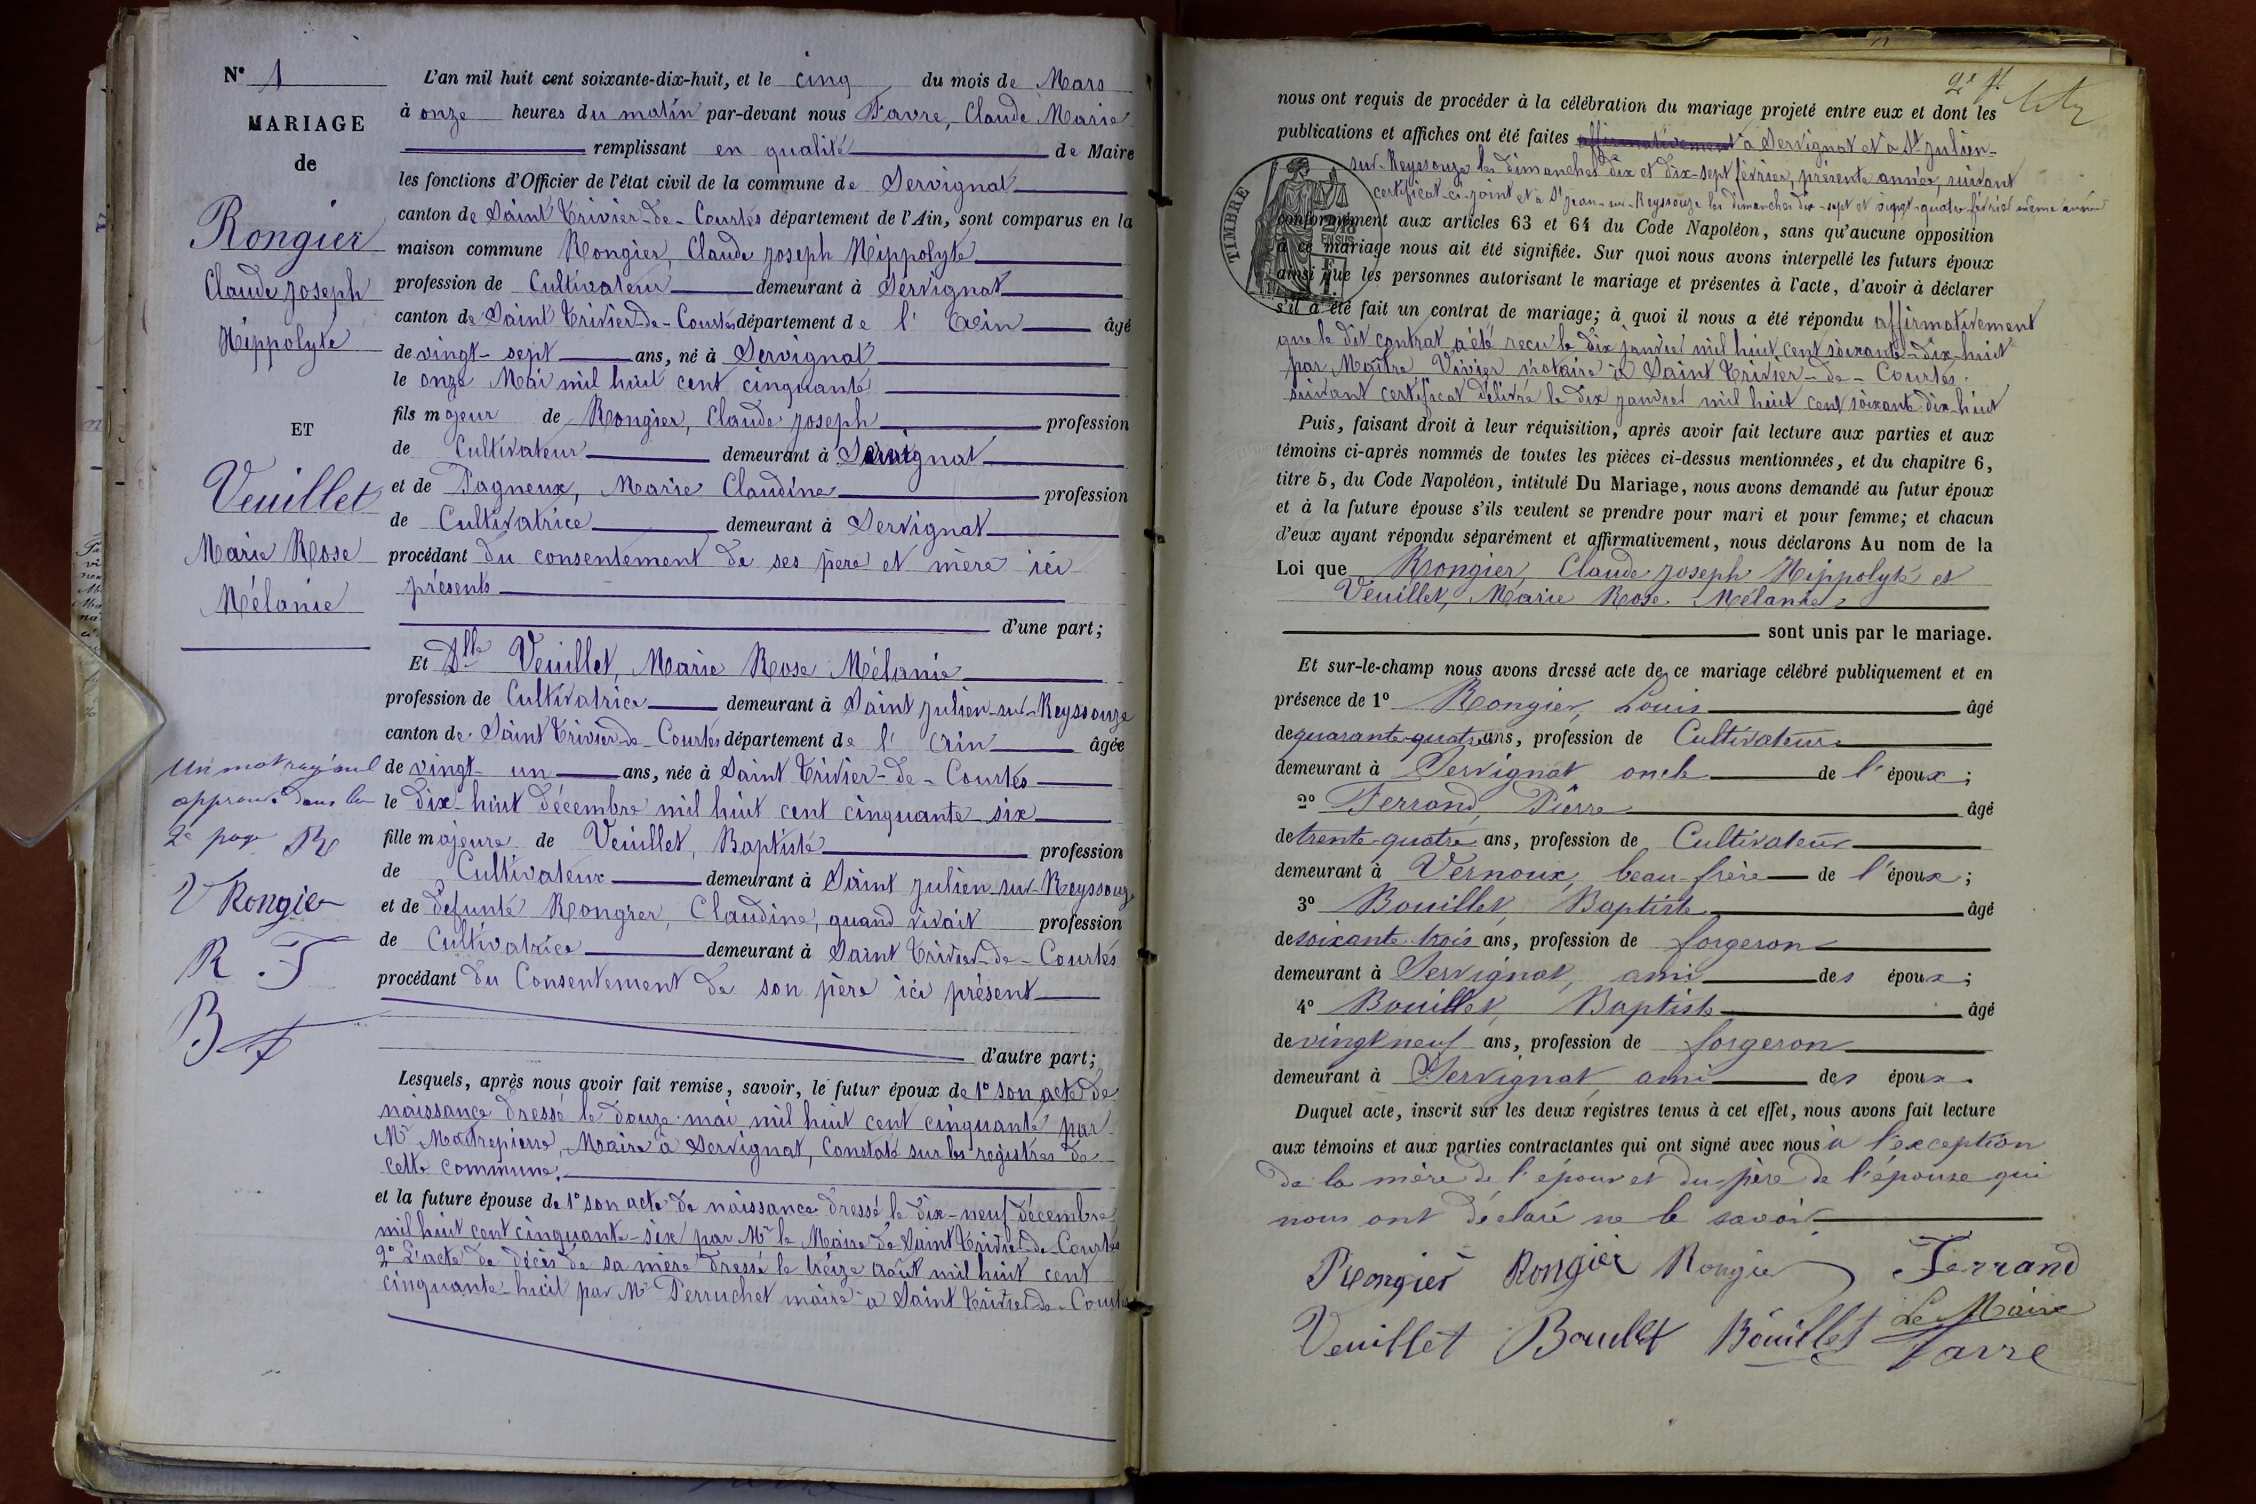 N° 1
MARIAGE
de
Rongier
Claude Joseph
Hippolyte
ET
Veuillet
Marie Rose
Mélanie
Un mot rayé nul
approuvé dans la
2e page
V Rongier
R F
B
L'an mil huit cent soixante-dix-huit, et le cinq du mois de Mars
à onze heures du matin par-devant nous Favre, Claude Marie
remplissant en qualité de Maire
les fonctions d'Officier de l'état civil de la commune de Servignat
canton de Saint Trivier-de-Courtes département de l'Ain, sont comparus en la
maison commune Rongier, Claude Joseph Hippolyte
profession de Cultivateur demeurant à Servignat
canton de Saint Trivier-de-Courtes département de l'Ain âgé
de vingt-sept ans, né à Servignat
le onze Mai mil huit cent cinquante
fils majeur de Rongier, Claude Joseph profession
de Cultivateur demeurant à Servignat
et de Pagneux, Marie Claudine profession
de Cultivatrice demeurant à Servignat
procédant du consentement de ses père et mère ici
présents
d'une part;
Et Dlle Veuillet, Marie Rose Mélanie
profession de Cultivatrice demeurant à Saint Julien-sur-Reyssouze
canton de Saint Trivier-de-Courtes département de l'Ain âgée
de vingt-un ans, née à Saint Trivier-de-Courtes
le dix-huit décembre mil huit cent cinquante six
fille majeure de Veuillet, Baptiste profession
de Cultivateur demeurant à Saint Julien-sur-Reyssouze
et de défunte Rongier, Claudine, quand vivait profession
de Cultivatrice demeurant à Saint Trivier-de-Courtes
procédant du Consentement de son père ici présent
d'autre part;
Lesquels, après nous avoir fait remise, savoir, le futur époux de 1° son acte de
naissance dressé le douze mai mil huit cent cinquante par
Mr Maitrepierre, Maire à Servignat, Constaté sur les registres de
cette commune.
et la future épouse de 1° son acte de naissance dressé le dix-neuf décembre
mil huit cent cinquante-six par Mr le Maire de Saint Trivier-de-Courtes
2° L'acte de décès de sa mère dressé le treize août mil huit cent
cinquante-huit par Mr Perruchet maire à Saint Trivier-de-Courtes
2e
nous ont requis de procéder à la célébration du mariage projeté entre eux et dont les
publications et affiches ont été faites affirmativement à Servignat et à St Julien-
sur-Reyssouze les dimanches dix et dix-sept février, présente année, suivant
certificat ci-joint et à St Jean-sur-Reyssouze les dimanches dix-sept et vingt-quatre février même année
TIMBRE
conformément aux articles 63 et 64 du Code Napoléon, sans qu'aucune opposition
à ce mariage nous ait été signifiée. Sur quoi nous avons interpellé les futurs époux
ainsi que les personnes autorisant le mariage et présentes à l'acte, d'avoir à déclarer
s'il a été fait un contrat de mariage; à quoi il nous a été répondu affirmativement
que le dit contrat a été reçu le dix janvier mil huit cent soixante-dix-huit
par Maître Vivier notaire à Saint Trivier-de-Courtes.
suivant certificat délivré le dix janvier mil huit cent soixante dix-huit
Puis, faisant droit à leur réquisition, après avoir fait lecture aux parties et aux
témoins ci-après nommés de toutes les pièces ci-dessus mentionnées, et du chapitre 6,
titre 5, du Code Napoléon, intitulé Du Mariage, nous avons demandé au futur époux
et à la future épouse s'ils veulent se prendre pour mari et pour femme; et chacun
d'eux ayant répondu séparément et affirmativement, nous déclarons Au nom de la
Loi que Rongier, Claude Joseph Hippolyte et
Veuillet, Marie Rose Mélanie,
sont unis par le mariage.
Et sur-le-champ nous avons dressé acte de ce mariage célébré publiquement et en
présence de 1° Rongier, Louis âgé
de quarante-quatre ans, profession de Cultivateur
demeurant à Servignat oncle de l'époux;
2° Ferrand, Pierre âgé
de trente-quatre ans, profession de Cultivateur
demeurant à Vernoux, beau-frère de l'époux;
3° Bouillet, Baptiste âgé
de soixante-trois ans, profession de forgeron
demeurant à Servignat, ami des époux;
4° Bouillet, Baptiste âgé
de vingt neuf ans, profession de forgeron
demeurant à Servignat ami des époux.
Duquel acte, inscrit sur les deux registres tenus à cet effet, nous avons fait lecture
aux témoins et aux parties contractantes qui ont signé avec nous à l'exception
de la mère de l'époux et du père de l'épouse qui
nous ont déclaré ne le savoir
Rongier Rongier Rongier Ferrand
Veuillet Bouillet Bouillet Le Maire
Favre